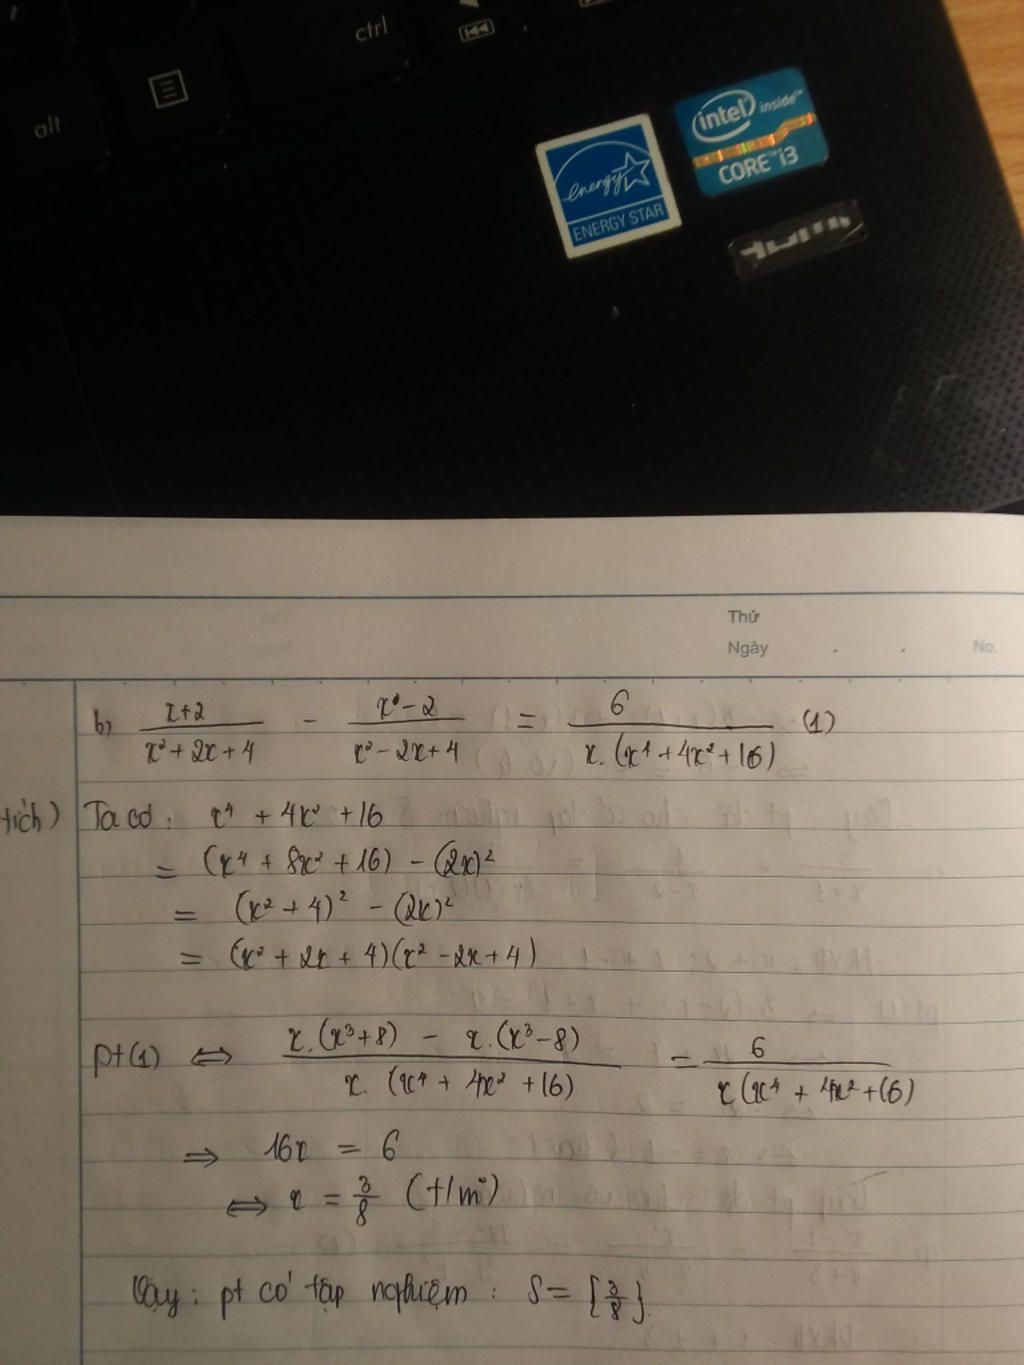 ctrl
alt
intel inside™
CORE™ i3
energy
ENERGY STAR
Thứ
Ngày . . No.
b) x+2 / x²+2x+4 - x-2 / x²-2x+4 = 6 / x.(x⁴+4x²+16) (1)
tích) Ta có: x⁴ + 4x² + 16
= (x⁴ + 8x² + 16) - (2x)²
= (x² + 4)² - (2x)²
= (x² + 2x + 4)(x² - 2x + 4)
pt(1) ⇔ x.(x³+8) - x.(x³-8) / x.(x⁴ + 4x² + 16) = 6 / x(x⁴ + 4x² + 16)
⇒ 16x = 6
⇔ x = 3/8 (t/m)
Vậy: pt có tập nghiệm: S = {3/8}.